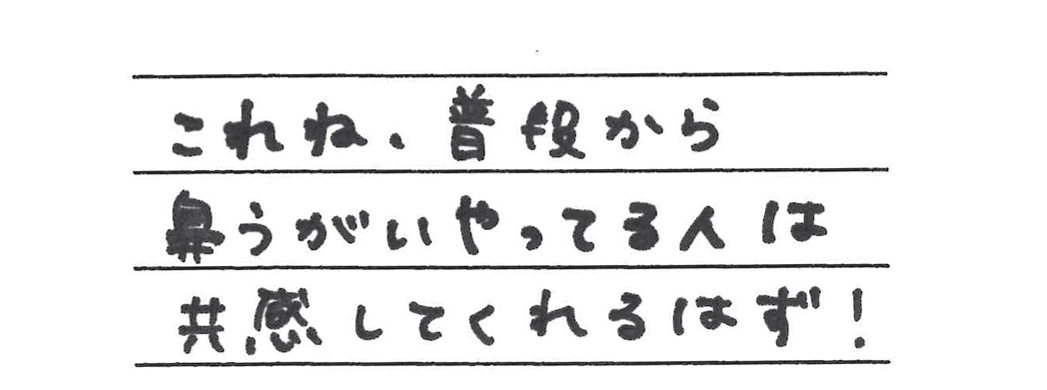 これね、普段から
鼻うがいやってる人は
共感してくれるはず!